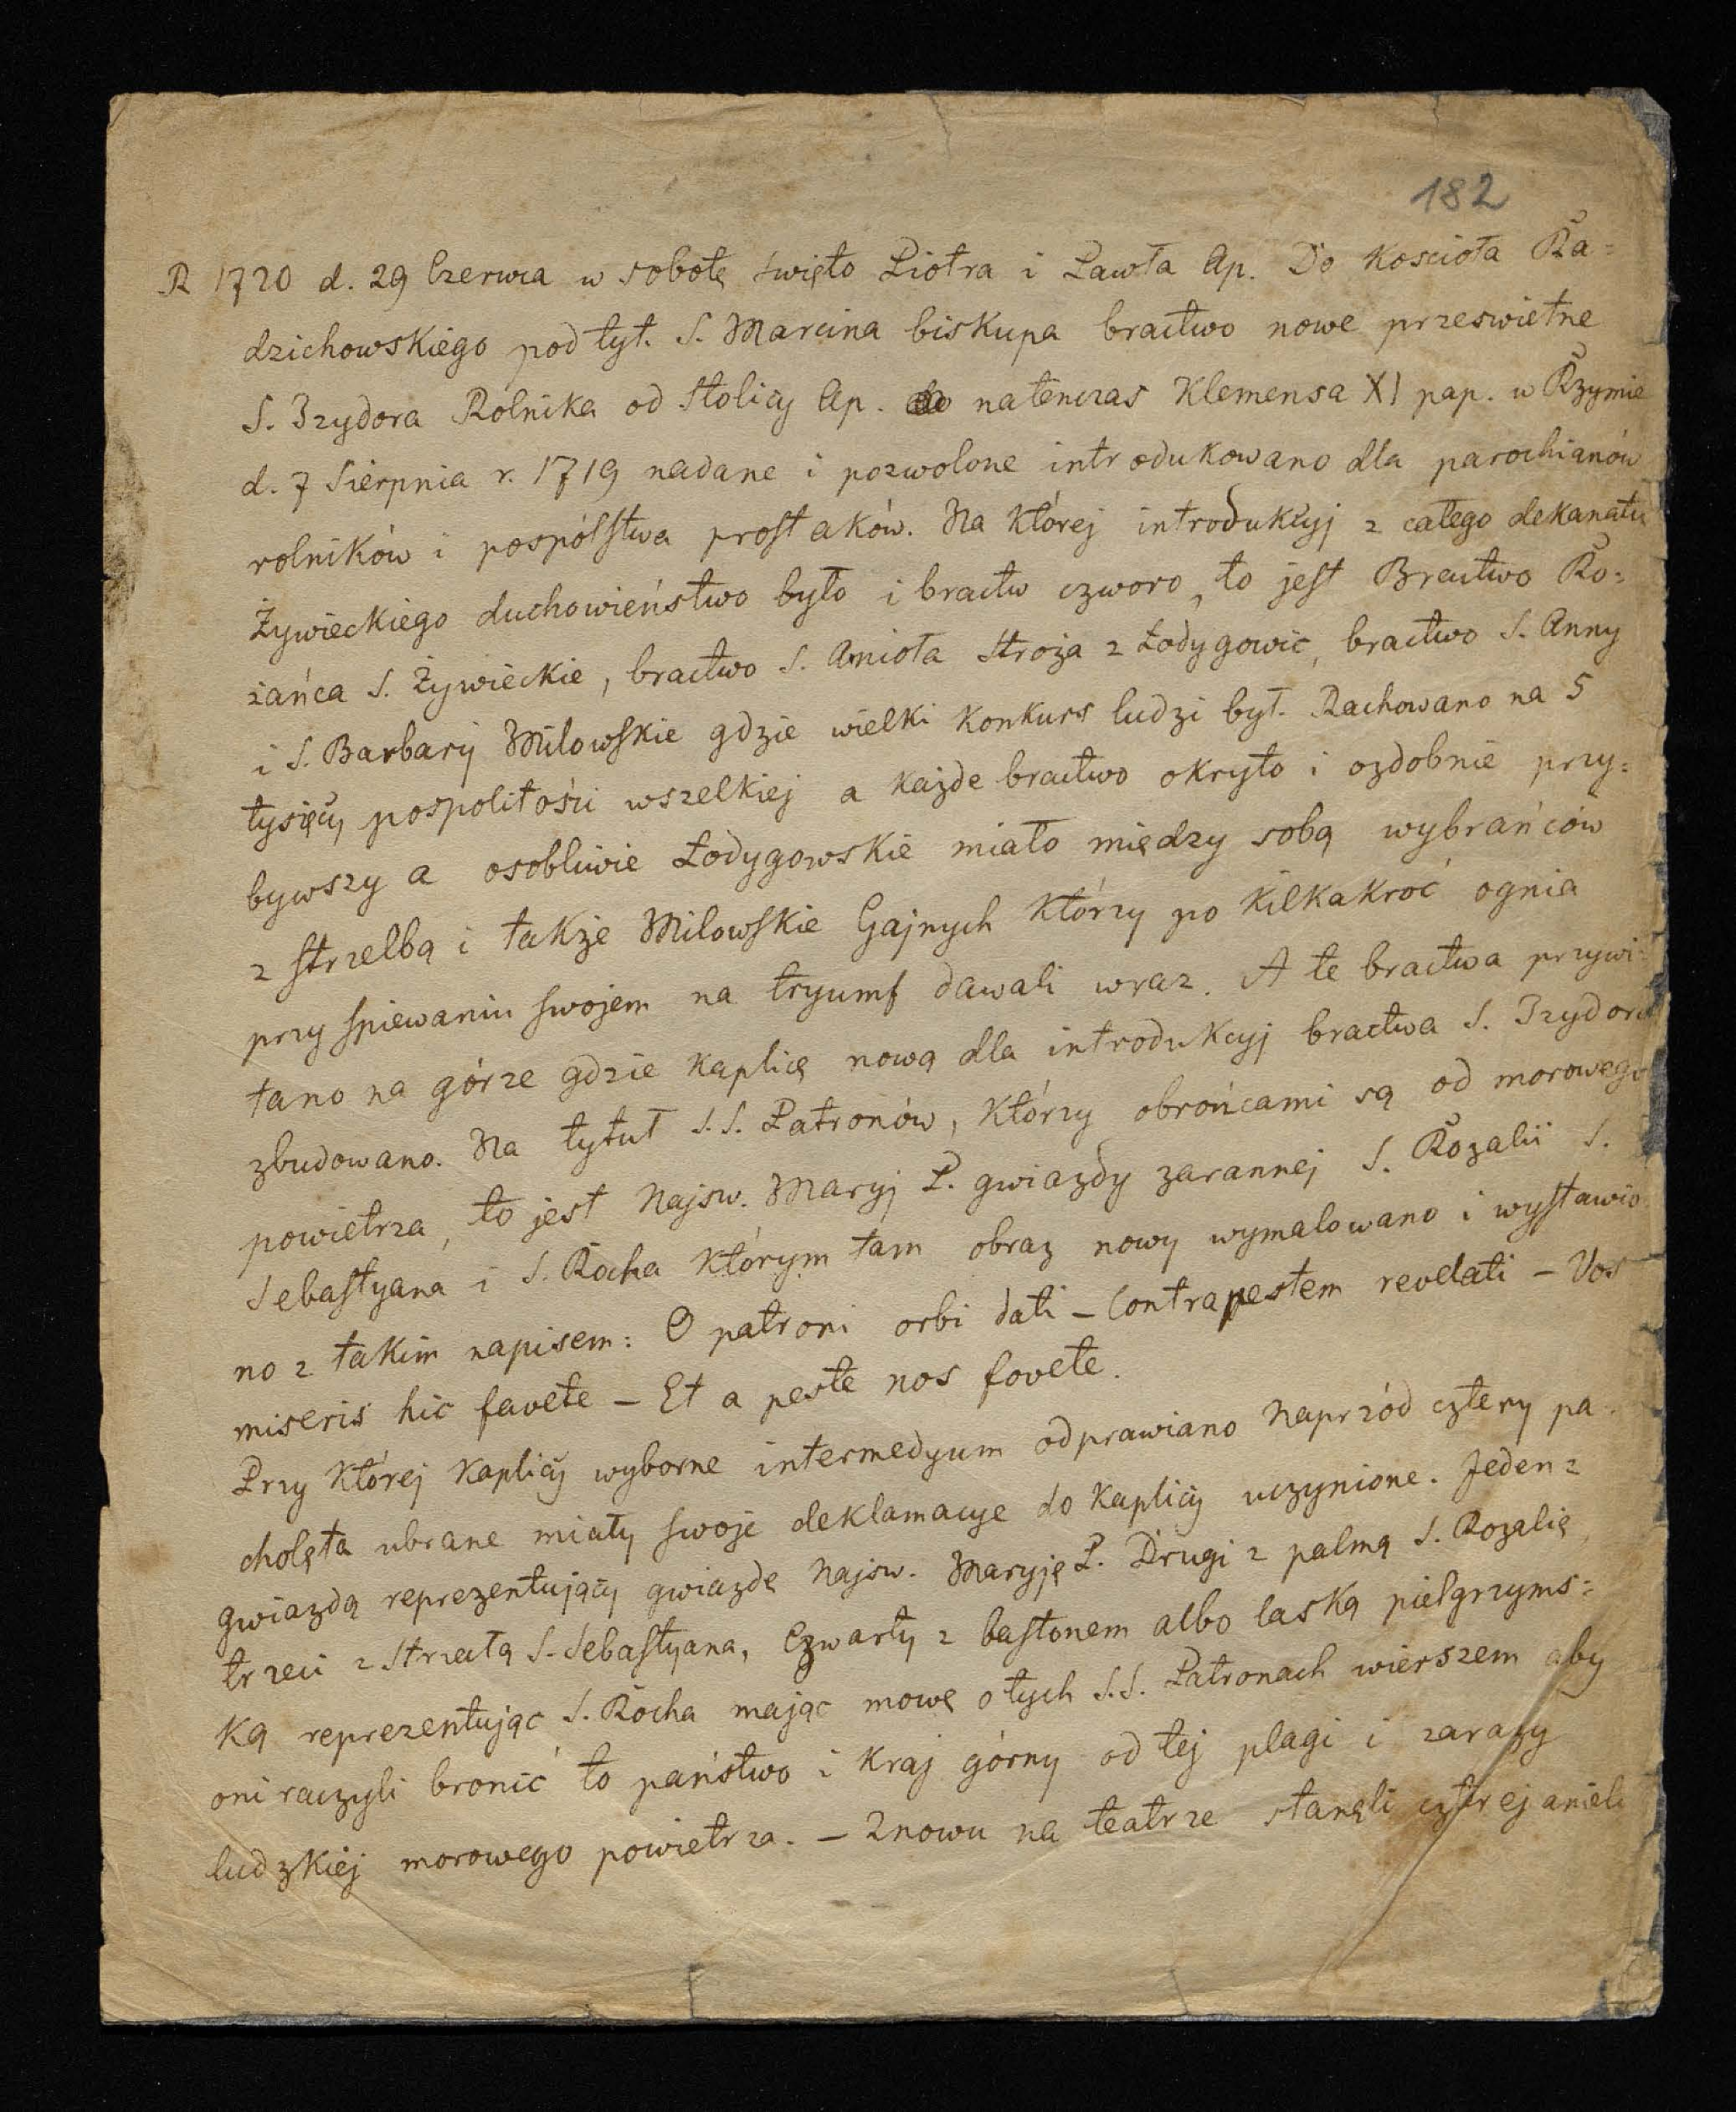 182
R 1720 d. 29 Czerwca w sobotę święto Piotra i Pawła Ap. Do Kościoła Ra=
dzichowskiego pod tyt. S. Marcina biskupa bractwo nowe przeswietne
S. Izydora Rolnika od Stolicy Ap. natenczas Klemensa XI pap. w Rzymie
d. 7 Sierpnia r. 1719 nadane i pozwolone introdukowano dla parochianów
rolników i pospólstwa prostaków. Na której introdukcyj z całego dekanatu
Żywieckiego duchowieństwo było i bractw czworo, to jest Bractwo Ro=
żańca S. Żywieckie, bractwo S. Anioła Stroża z Łodygowic, bractwo S. Anny
i S. Barbary Milowskie gdzie wielki konkurs ludzi był. Rachowano na 5
tysięcy pospolitości wszelkiej a każde bractwo okryto i ozdobnie przy=
bywszy a osobliwie Łodygowskie miało między sobą wybrańców
z strzelbą i także Milowskie Gajnych którzy po kilkakroć ognia
przy spiewaniu swojem na tryumf dawali wraz. A te bractwa przywi=
tano na górze gdzie kaplicę nową dla introdukcyj bractwa S. Izydora
zbudowano. Na tytuł S.S. Patronów, którzy obrońcami są od morowego
powietrza, to jest Najsw. Maryj P. gwiazdy zarannej S. Rozalii S.
Sebastyana i S. Rocha którym tam obraz nowy wymalowano i wystawio
no z takim napisem: O patroni orbi dati – Contra pestem revelati – Vos
miseris hic favete – Et a peste nos fovete.
Przy której kaplicy wyborne intermedyum odprawiano Naprzód cztery pa-
cholęta ubrane miały swoje deklamacye do kaplicy uczynione. Jeden z
gwiazdą reprezentujący gwiazdę Najsw. Maryję P. Drugi z palmą S. Rozalię,
trzeci z strzałą S. Sebastyana, Czwarty z bastonem albo laską pielgrzyms=
ką reprezentując S. Rocha mając mowę o tych S.S. Patronach wierszem aby
oni raczyli bronić to państwo i kraj górny od tej plagi i zarazy
ludzkiej morowego powietrza. – Znowu na teatrze stanęli cztrej anieli